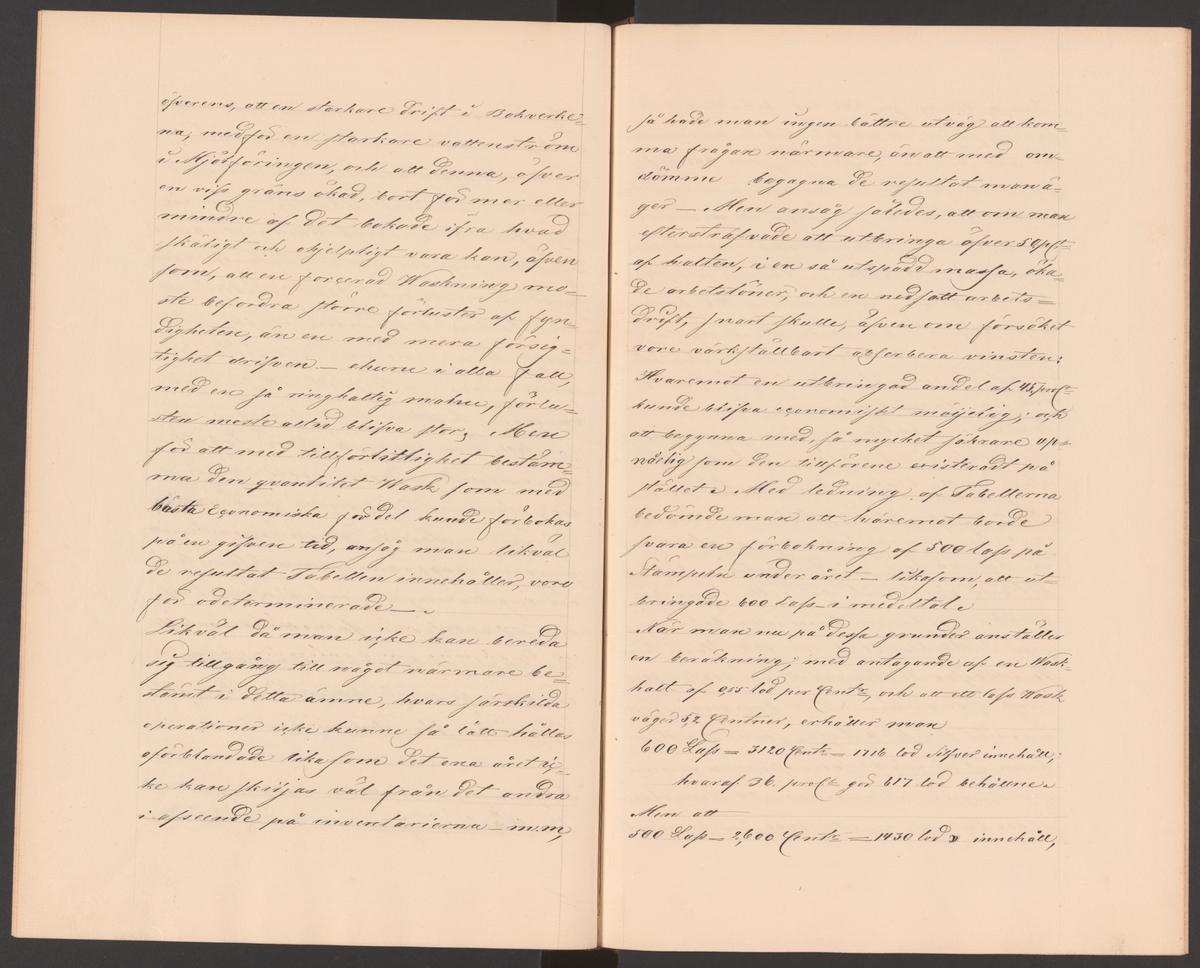 öfverens, att en starkare drift i Bokverke=
na, medför en starkare vattenström
i Mjölföringen, och att denna, öfver
en viss gräns ökad, bort för mer eller
mindre af det bokade ifrå hvad
skäligt och hjelpligt vara kan, äfven
som, att en forcerad Waskning må=
ste befordra större förluster af fyn=
digheten, än en med mera försig=
tighet drifven — ehuru i alla fall,
med en så ringhaltig malm, förlu=
sten måste alltid blifva stor. Men
för att med tillförlitlighet bestäm=
ma den qvantitet Wask som med
bästa economiska fördel kunde förbokas
på en gifven tid, ansåg man likväl
de resultat Tabellen innehåller, vara
för odeterminerade.
Likväl då man icke kan bereda
sig tillgång till något närmare be=
stämt i detta ämne, hvars särskilda
operationer icke kunne så lätt hållas
oförblandade likasom det ena året ic=
ke kan skiljas väl från det andra
i afseende på inventarierna — m.m,
så hade man ingen bättre utväg att kom=
ma frågan närmare, än att med om=
dömme begagna de resultat man ä=
ger — Men ansåg således, att om man
eftersträfvade att utbringa öfver 50 pct
af halten, i en så utspädd massa, öka=
de arbetslöner, och en nedsatt arbets=
drift, snart skulle, äfven om försöket
vore värkställbart absorbera vinsten;
Hvaremot en utbringad andel af 45 proCt
kunde blifva economiskt möjelig; och
att begynna med, så mycket säkrare op=
nåelig som den tillförene existeradt på
stället. Med ledning af Tabellerna
bedömde man att häremot borde
svara en förbokning af 500 lass på
Stämpeln under året — likasom, att ut=
bringade 600 Lass i medeltal.
När man nu på dessa grunder anställer
en beräkning; med antagande af en Wask=
halt af 0,55 lod per Centr, och att ett lass Wask
väger 5,2 Centner, erhåller man
600 Lass = 3120 Centr = 1716 lod Silfver innehåll;
hvaraf 36. proCt gör 617 lod behållne.
Men att
500 Lass = 2,600 Centr = 1430 lod innehåll,